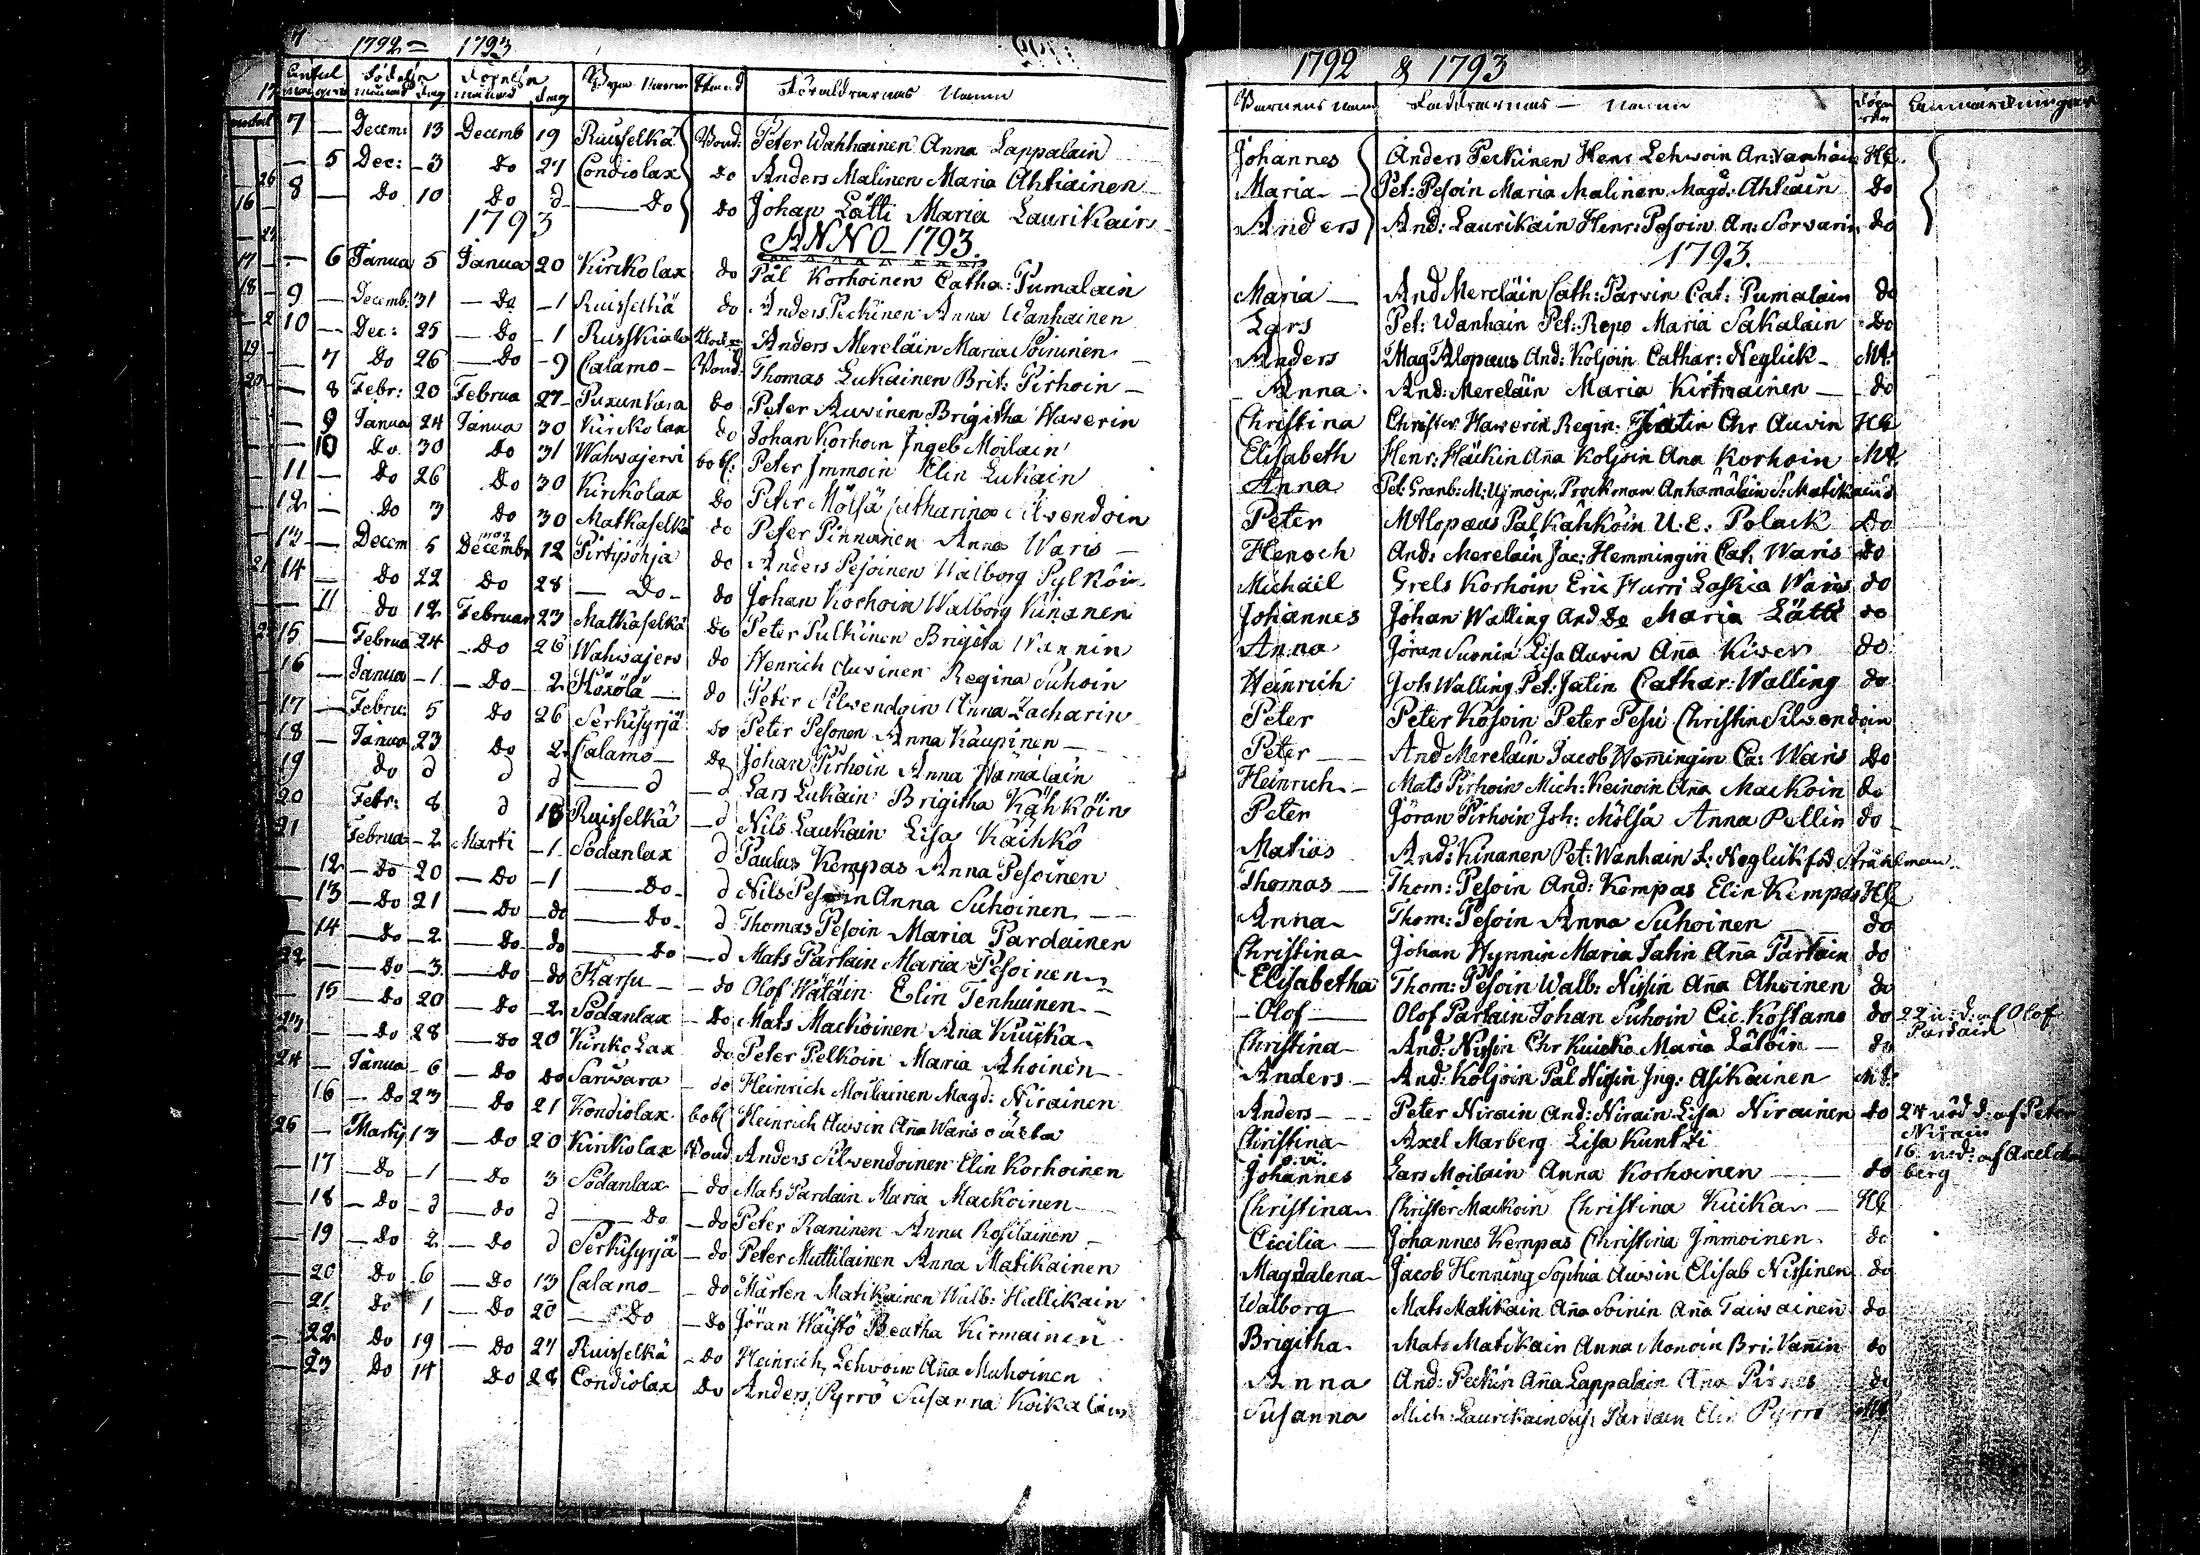 1792 = 1793
Födelse Döpelse Byns Namn Stånd Föräldrarnas Namn
månad dag månad dag
7 — Decem: 13 Decemb 19 Ruisselkä Bond: Peter Wahhainen Anna Lappalain
— 5 Dec: 3 do 27 Condiolax do Anders Malinen Maria Ahtiainen
8 — do 10 do d — do do Johan Lätti Maria Laurikain
1793 ANNO 1793.
— 6 Janua 5 Janua 20 Kirikolax do Pål Korhoinen Catha: Pumalain
9 — Decemb: 31 — do 1 Ruisselkä do Anders Peckinen Anna Wanhainen
10 — Dec: 25 — do 1 Anders Mereläin Maria Soininen
— 7 do 26 — do 9 Calamo Bond: Thomas Lukainen Brit: Pirhoin
— 8 Febr: 20 Februa 27 Puxunvara do Peter Auvinen Brigitha Hawerin
— 9 Janua 24 Janua 30 Kirikolax do Johan Korhoin Ingeb Moilain
— 10 do 30 do 31 Wahwajervi bobl: Peter Immoin Elin Lukain
11 — do 26 do 30 Kirikolax do Peter Mölsä Catharina Silvendoin
12 — do 3 do 30 Matkaselkä do Peter Pinnonen Anna Waris
13 — Decem 5 Decembr 12 Pirtipohja do Anders Pesoinen Walborg Pylköin
14 — do 22 do 28 — do do Johan Korhoin Walborg Kinanen
— 11 do 12 Februar 23 Matkaselkä do Peter Pulkinen Brigita Wannin
15 — Februa 24 do 26 Wahwajerv do Henrich Auvinen Regina Suhoin
16 — Janua 1 do 2 do Peter Silvendoin Anna Zacharin
17 — Febru: 5 do 26 Serkisyrjä do Peter Pesonen Anna Kaupinen
18 Janua 23 do 2 Calamo do Johan Pirhoin Anna Hämäläin
19 do d d d — d d Lars Lukain Brigitha Kähköin
20 Febr: 8 d 18 Ruisselkä d Nils Laukain Lisa Kaihko
21 Februa 2 Marti 1 Södanlax d Paulus Kempas Anna Pesoinen
— 12 do 20 do 1 — do d Nils Pesoin Anna Suhoinen
— 13 do 21 do do — do d Thomas Pesoin Maria Pardainen
— 14 do 2 do do — do d Mats Partain Maria Pesoinen
22 — do 3 do do Karsu do Olof Wätäin Elin Tenhuinen
— 15 do 20 do 2 Södanlax do Mats Mackoinen Ana Kuicka
23 — do 28 do 20 Kiriko Lax do Peter Pelkoin Maria Ahoinen
24 — Janua 6 do do Sarivara do Heinrich Moilainen Magd: Nirainen
— 16 do 23 do 21 Kondiolax bobl Heinrich Auvin Aña Waris
26 — Martij 13 do 20 Kirikolax Bond Anders Silvendoinen Elin Korhoinen
— 17 do 1 do 3 Södanlax do Mats Pardain Maria Mackoinen
— 18 do d do d — do do Peter Raninen Anna Rosilainen
— 19 do 2 do d Serkisyrjä do Peter Muttilainen Anna Matikainen
— 20 do 6 do 13 Calamo do Mårten Matikainen Walb: Hallikain
— 21 do 1 do 20 — do do Jöran Wäistö Beatha Kirmainen
— 22 do 19 do 27 Ruisselkä do Heinrich Lehvoin Aña Muhoinen
— 23 do 14 do 28 Condiolax do Anders Pyrrö Susanna Koikalain
1792 & 1793
Barnens Namn Faddrarnas — Namn Anmärckningar
Johannes Anders Peckinen Henr Lehvoin An: Vanhain HC.
Maria Pet: Pesoin Maria Malinen Magd: Ahtiain do
Anders And: Laurikain Henr: Pesoin An: Sorvarin do
1793.
Maria And Mereläin Cath: Parvin Cat: Pumalain do
Lars Pet: Wanhain Pet: Repo Maria Sakalain do
Anders Mag Alopæus And: Koljoin Cathar: Neglick MA:
Anna And: Mereläin Maria Kirmainen do
Christina Christer Hawerin Regin: Jätin Chr Auvin
Elisabeth Henr: Häckin Aña Koljoin Ana Korhoin MA
Anna
Peter MAlopæus Pål Kähköin U. E. Polack do
Henoch And: Merelain Jac: Hemmingin Cat. Waris do
Michael Grels Korhoin Eric Harri Waris do
Johannes Johan Walling And do Maria Lätti do
Anna Jöran Surnin Lisa Auvin Aña Kiven do
Heinrich Joh Walling Pet: Jatin Cathar: Walling do
Peter Peter Kosoin Peter Pesu Christin Silvendoin
Peter And Merelain Jacob Hemingin Ca: Waris do
Heinrich Mats Pirhoin Mich: Keinoin Aña Mackoin do
Peter Jöran Pirhoin Joh: Mölsä Anna Pellin do
Matias And: Kinanen Pet: Wanhain L: Neglick föd Stråhlman
Thomas Thom: Pesoin And: Kempas Elin Kempas
Anna Thom: Pesoin Anna Suhoinen do
Christina Johan Hynnin Maria Jatin Aña Partain do
Elisabetha Thom: Pesoin Walb: Nissin Aña Ahoinen do
Olof Olof Partain Johan Suhoin Cic. Kostamo do 22 u: d: af Olof
Pardain
Christina And: Nissin Chr Kuicka Maria Lätöin do
Anders And: Koljoin Pål Nissin Ing: Asikainen
Anders Peter Nirain And: Nirain Lisa Nirainen do 24 af Peter
Nirain
Christina Axel Marberg Lisa Kuntzi
o.ä. 16 u:d: af Axel
Johannes Lars Moilain Anna Korhoinen do berg
Christina Christer Mackoin Christina Kuika
Cicilia Johannes Kempas Christina Immoinen do
Magdalena Jacob Henning Sophia Auvin Elisab Nissinen do
Walborg Mats Matikain Aña Soinin Aña Taivainen do
Brigitha Mats Matikain Anna Monoin Bri: Vanin do
Anna And: Peckin Aña Lappalain Ana Pirnes do
Susanna Mich: Laurikain Partain Elin Pyrrö